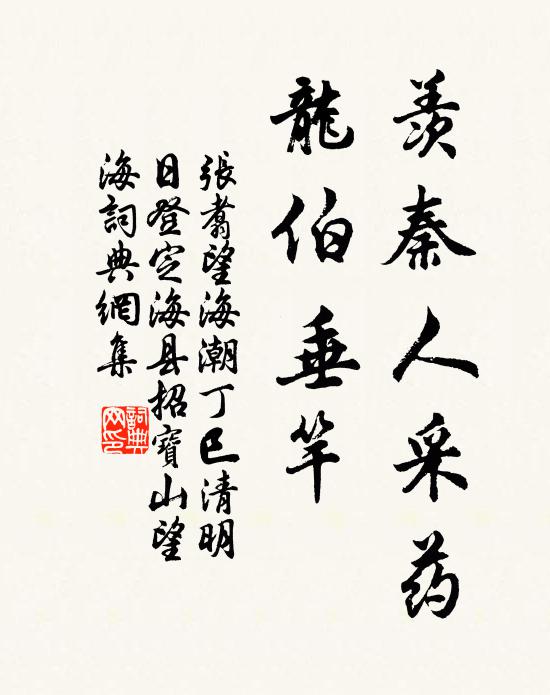 羡秦人采药
龍伯垂竿
張翥望海潮丁巳清明
日登定海县招寶山望
海詞典網集
詞典網印